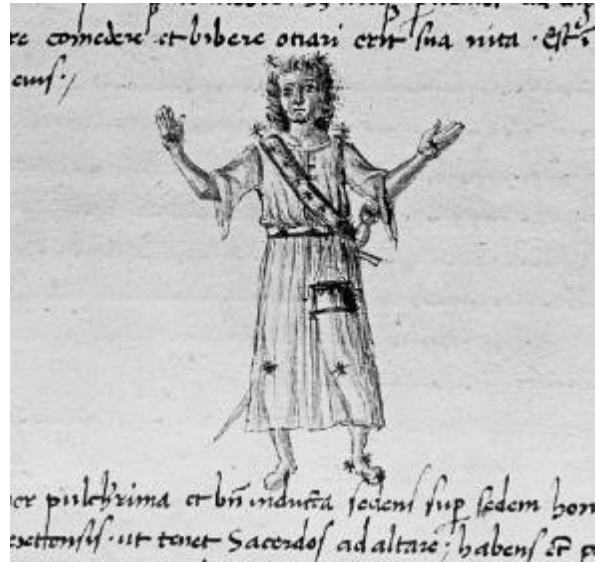 re comedere et bibere otiari erit sua uita · Est i
eius ·/
er pulchrima et bn̄ inducta sedens sup sedem hon
ut tenet Sacerdos ad altare ; habens